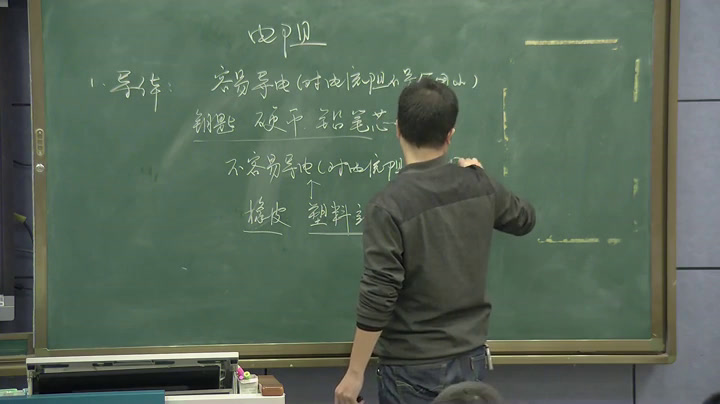 电阻
1. 导体： 容易导电(对电流阻碍作用小)
钥匙 硬币 铅笔芯
不容易导电(对电流阻
橡皮 塑料